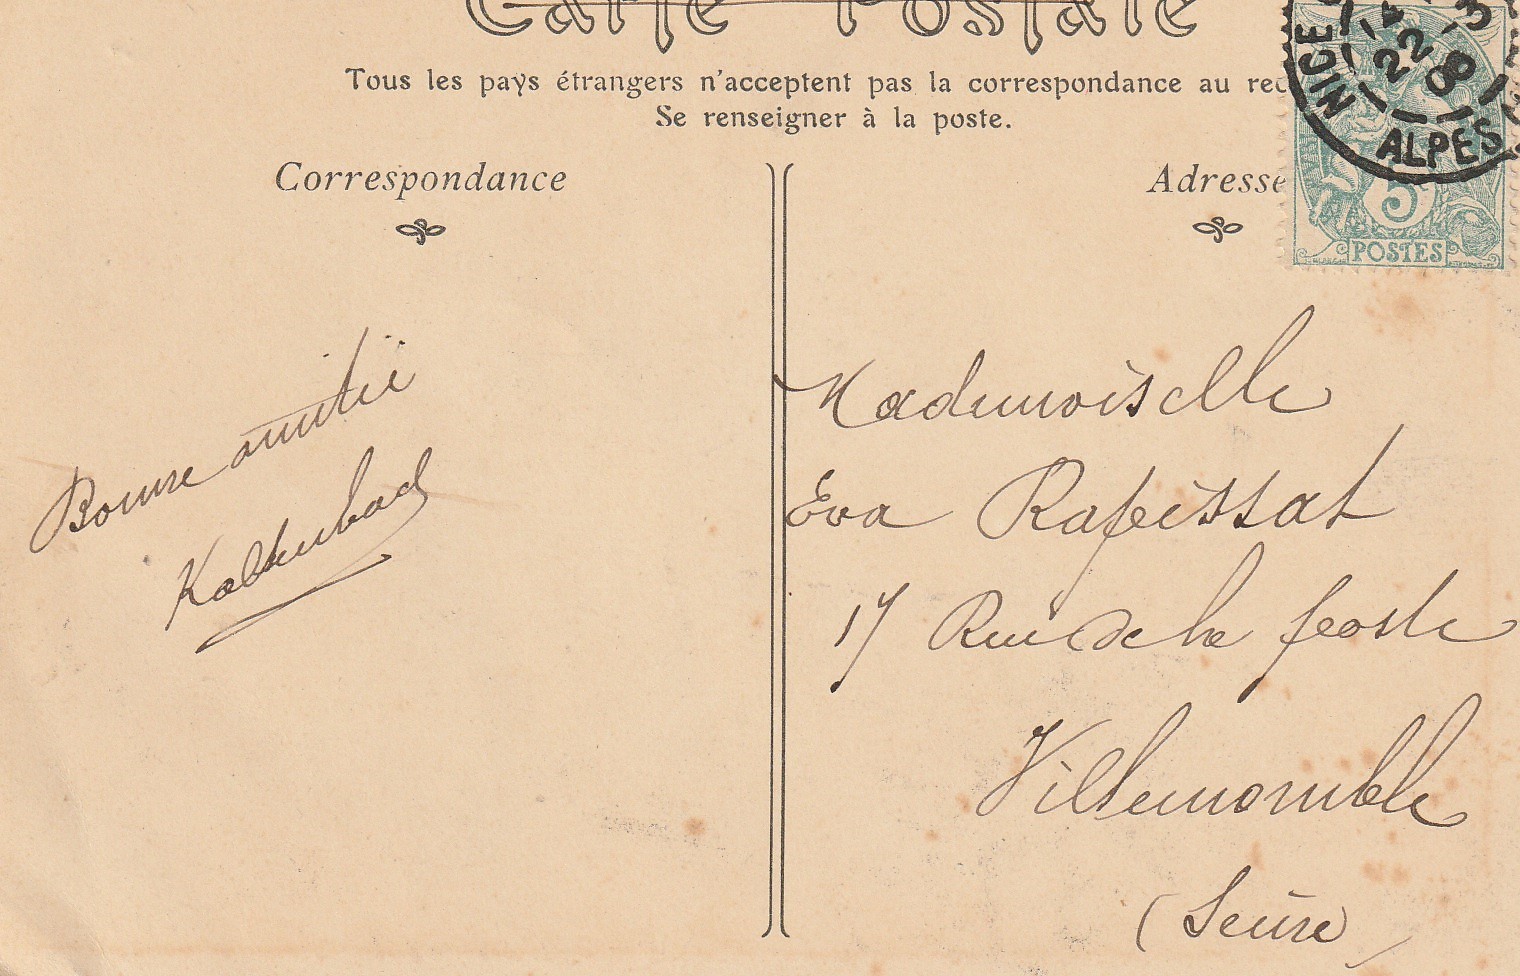 Carte Postale
Tous les pays étrangers n'acceptent pas la correspondance au rec
Se renseigner à la poste.
Correspondance
Adresse
NICE
22
3
08
ALPES
5
POSTES
Bonne amitié
Kaltenbach
Mademoiselle
Eva Rapissat
17 Rue de la poste
Villemomble
(Seine)